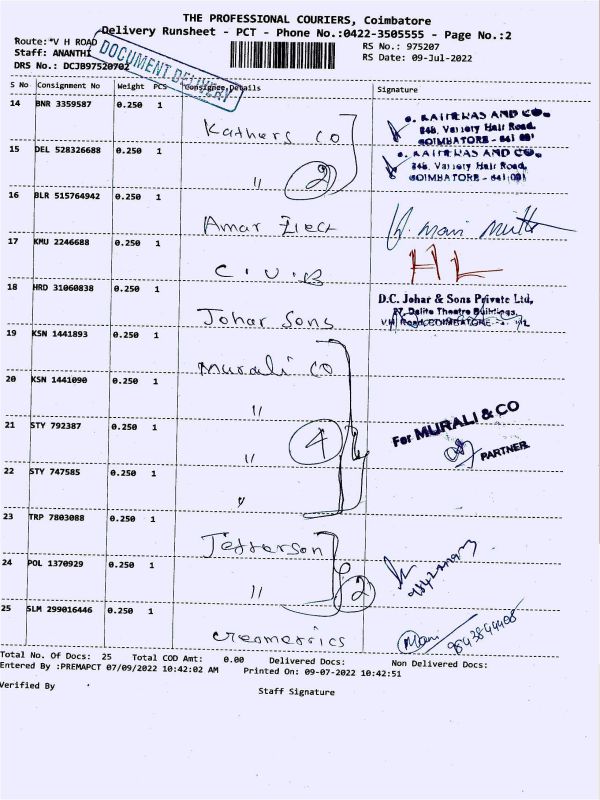 THE PROFESSIONAL COURIERS, Coimbatore
Delivery Runsheet - PCT - Phone No.:0422-3505555 - Page No.:2
Route: V H ROAD
RS No.: 975207
Staff: ANANTHI
RS Date: 09-Jul-2022
DRS No.: DCJB97520702
DOCUMENT DELIVERY
S No Consignment No Weight PCS Consignee Details Signature
14 BNR 3359587 0.250 1
Kathers Co
& CO.
848, Variety Hall Road,
COIMBATORE - 641 001
15 DEL 528326688 0.250 1
" 2
848, Variety Hall Road,
COIMBATORE - 641 001
16 BLR 515764942 0.250 1
Amar Elect
17 KMU 2246688 0.250 1
C.U.B
HL
18 HRD 31060838 0.250 1
Johar Sons
D.C. Johar & Sons Private Ltd,
27, Delite Theatre Buildings,
V.H. Road, COIMBATORE
19 KSN 1441893 0.250 1
Murali Co
20 KSN 1441090 0.250 1
"
21 STY 792387 0.250 1
" 4
For MURALI & CO
PARTNER
22 STY 747585 0.250 1
"
23 TRP 7803088 0.250 1
Jefferson
24 POL 1370929 0.250 1
" 2
25 SLM 299016446 0.250 1
creometrics
Mani
9843844408
Total No. Of Docs: 25 Total COD Amt: 0.00 Delivered Docs: Non Delivered Docs:
Entered By :PREMAPCT 07/09/2022 10:42:02 AM Printed On: 09-07-2022 10:42:51
Verified By
Staff Signature